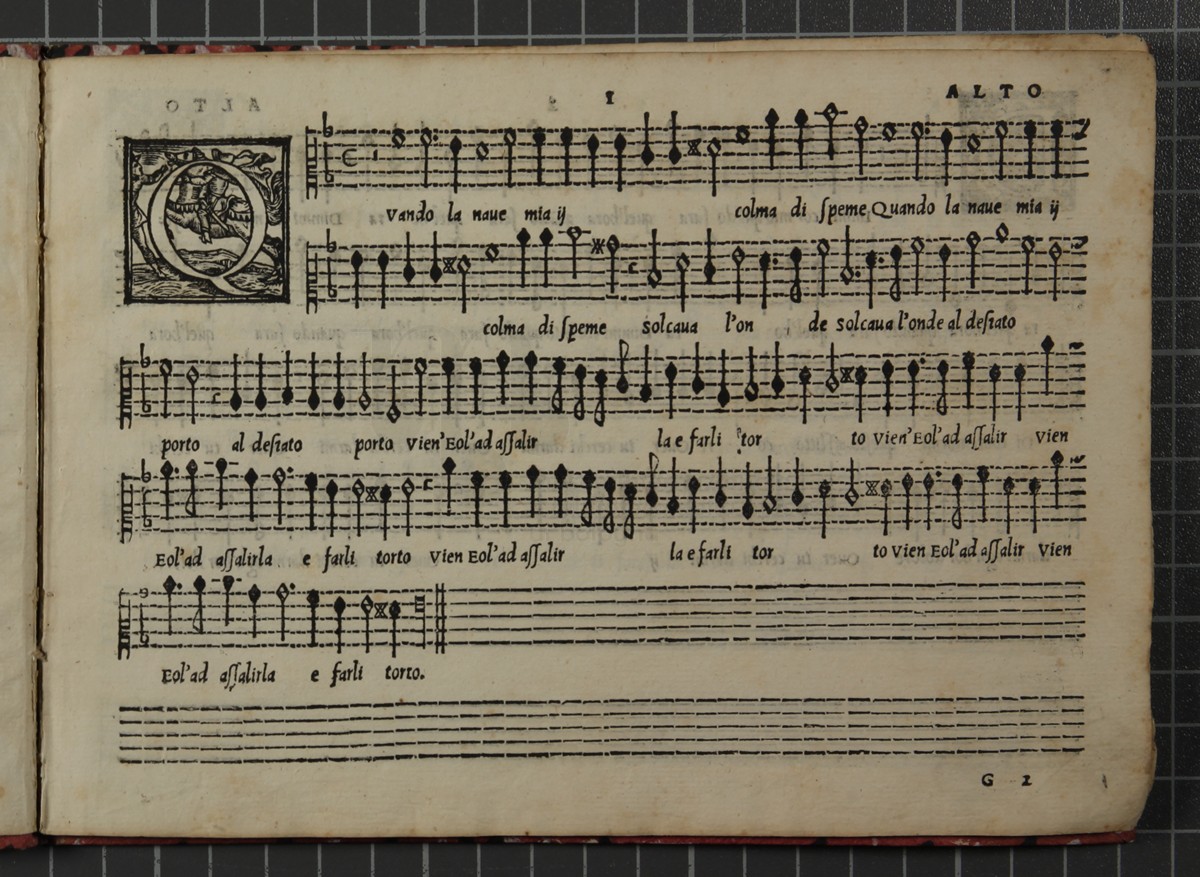 1 ALTO
Q
Vando la naue mia ij colma di ſpeme Quando la naue mia ij
colma di ſpeme solcaua l'on de solcaua l'onde al desiato
porto al desiato porto vien'Eol'ad aſſalir la e farli tor to vien'Eol'ad aſſalir vien
Eol'ad aſſalirla e farli torto vien Eol'ad aſſalir la e farli tor to vien Eol'ad aſſalir vien
Eol'ad aſſalirla e farli torto.
G 2